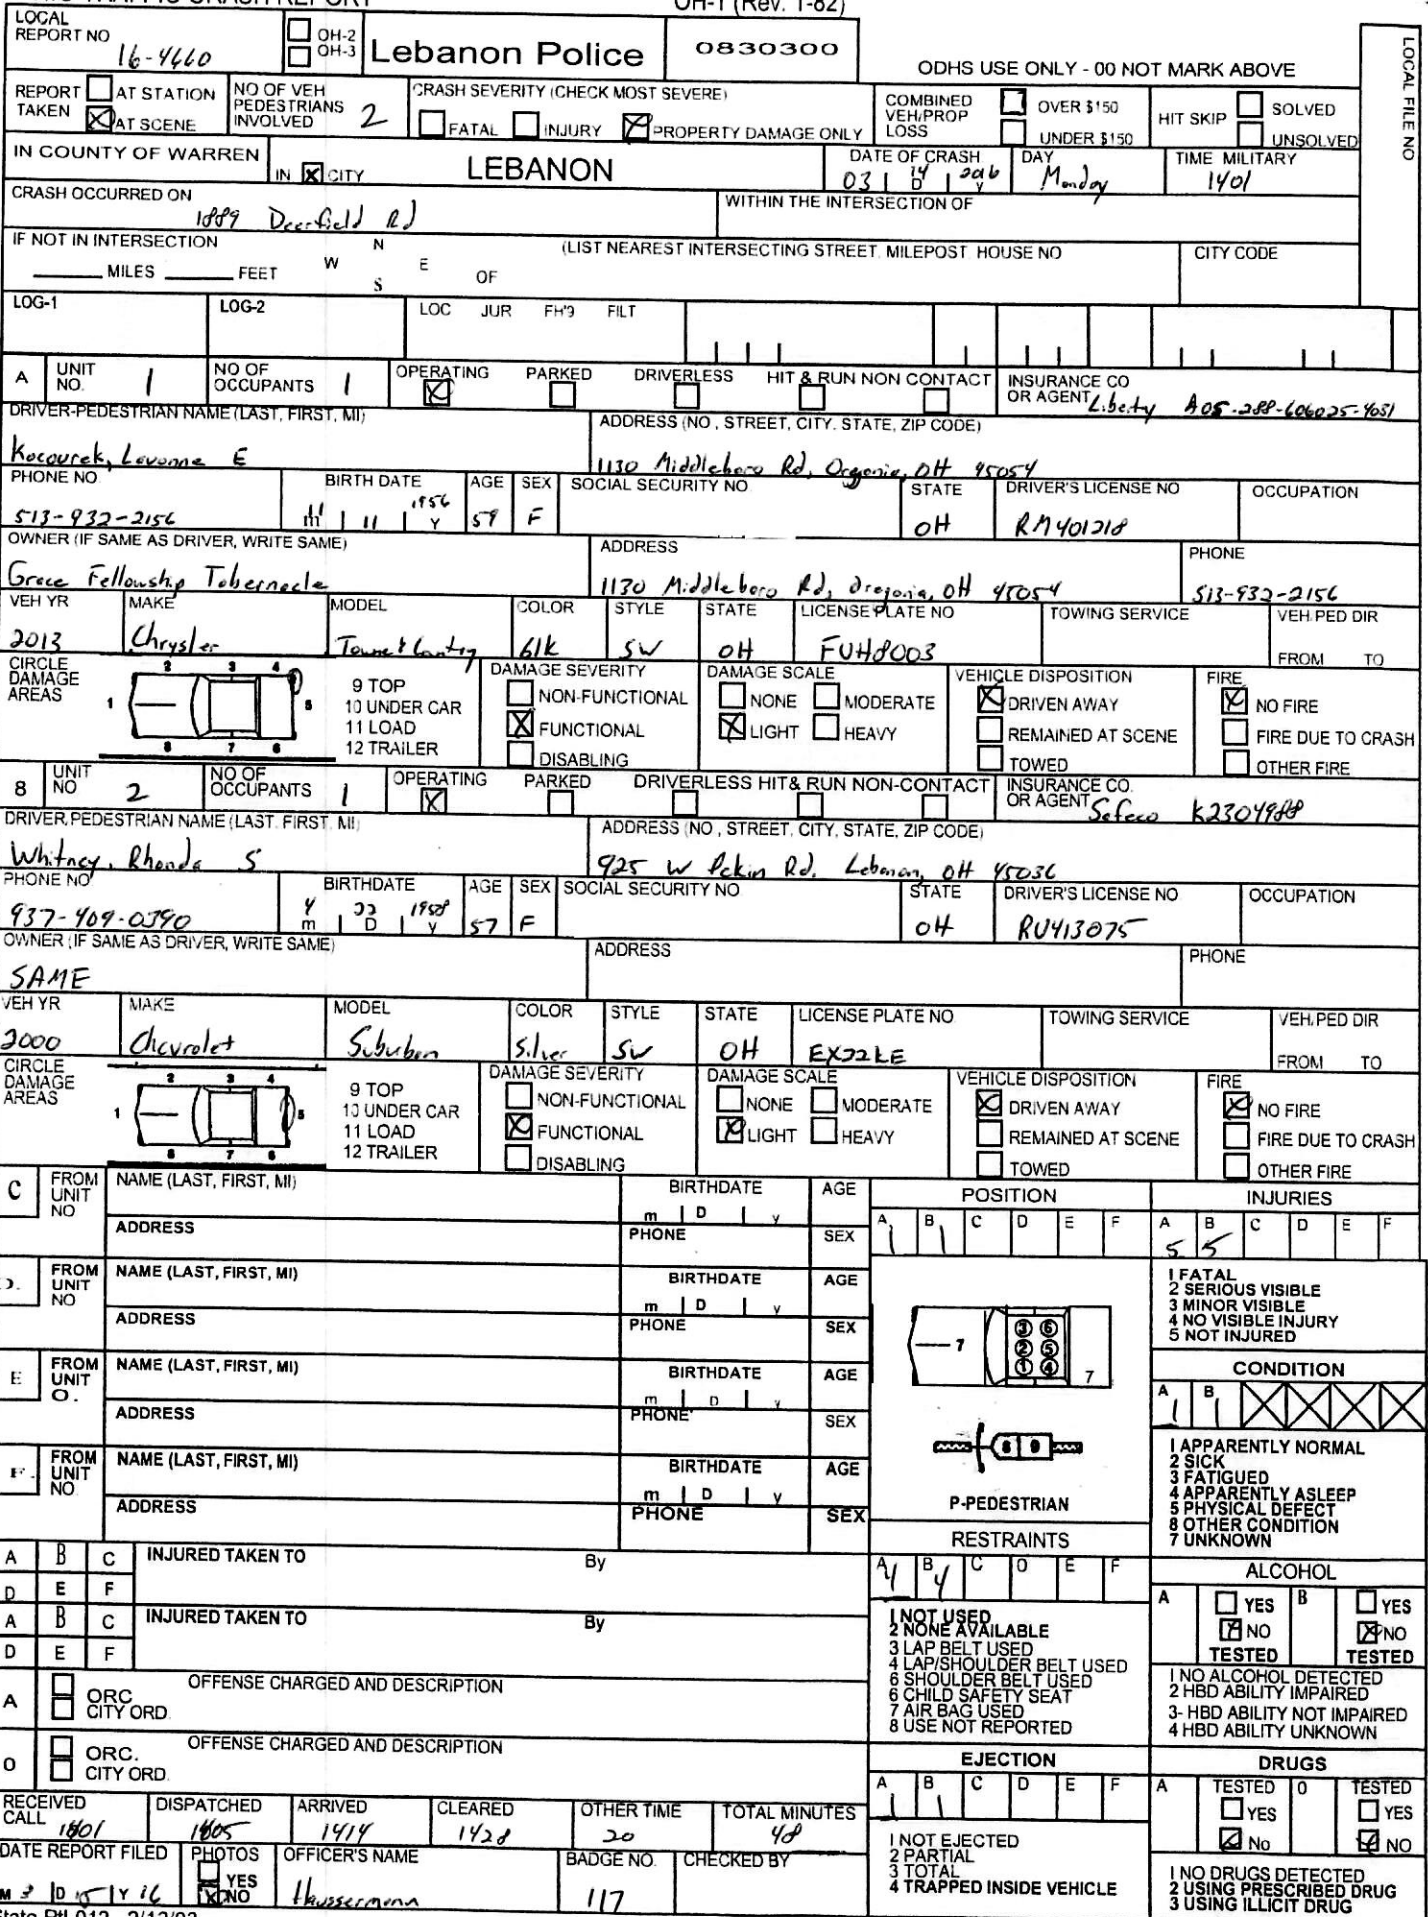 OH-1 (Rev. 1-82)
LOCAL REPORT NO 16-4660
OH-2
OH-3
Lebanon Police
0830300
ODHS USE ONLY - 00 NOT MARK ABOVE
LOCAL FILE NO
REPORT TAKEN AT STATION AT SCENE
NO OF VEH PEDESTRIANS INVOLVED 2
CRASH SEVERITY (CHECK MOST SEVERE)
FATAL INJURY PROPERTY DAMAGE ONLY
COMBINED VEH/PROP LOSS OVER $150 UNDER $150
HIT SKIP SOLVED UNSOLVED
IN COUNTY OF WARREN IN X CITY LEBANON
DATE OF CRASH 03 14 2016 D Y
DAY Monday
TIME MILITARY 1401
CRASH OCCURRED ON 1889 Deerfield Rd
WITHIN THE INTERSECTION OF
IF NOT IN INTERSECTION
MILES FEET N W E S OF
(LIST NEAREST INTERSECTING STREET, MILEPOST, HOUSE NO
CITY CODE
LOG-1 LOG-2 LOC JUR FH'9 FILT
A UNIT NO. 1 NO OF OCCUPANTS 1 OPERATING PARKED DRIVERLESS HIT & RUN NON CONTACT
INSURANCE CO OR AGENT Liberty A05-288-606025-4051
DRIVER-PEDESTRIAN NAME (LAST, FIRST, MI) Kocourek, Lavonne E
ADDRESS (NO, STREET, CITY, STATE, ZIP CODE) 1130 Middleboro Rd, Oregonia, OH 45054
PHONE NO. 513-932-2156
BIRTH DATE 11 11 1956 m Y
AGE 59 SEX F SOCIAL SECURITY NO.
STATE OH DRIVER'S LICENSE NO RM401218 OCCUPATION
OWNER (IF SAME AS DRIVER, WRITE SAME) Grace Fellowship Tabernacle
ADDRESS 1130 Middleboro Rd, Oregonia, OH 45054
PHONE 513-932-2156
VEH YR 2013 MAKE Chrysler MODEL Towne & Contry COLOR blk STYLE SW STATE OH LICENSE PLATE NO FUH8003 TOWING SERVICE VEH. PED DIR FROM TO
CIRCLE DAMAGE AREAS
1 2 3 4 5 6 7 8
9 TOP
10 UNDER CAR
11 LOAD
12 TRAILER
DAMAGE SEVERITY NON-FUNCTIONAL FUNCTIONAL DISABLING
DAMAGE SCALE NONE MODERATE LIGHT HEAVY
VEHICLE DISPOSITION DRIVEN AWAY REMAINED AT SCENE TOWED
FIRE NO FIRE FIRE DUE TO CRASH OTHER FIRE
8 UNIT NO 2 NO OF OCCUPANTS 1 OPERATING PARKED DRIVERLESS HIT & RUN NON-CONTACT
INSURANCE CO. OR AGENT Safeco K2304988
DRIVER, PEDESTRIAN NAME (LAST, FIRST, MI) Whitney, Rhonda S
ADDRESS (NO, STREET, CITY, STATE, ZIP CODE) 925 W Pekin Rd, Lebanon, OH 45036
PHONE NO 937-409-0390
BIRTHDATE 4 22 1958 m D Y
AGE 57 SEX F SOCIAL SECURITY NO
STATE OH DRIVER'S LICENSE NO RU413075 OCCUPATION
OWNER (IF SAME AS DRIVER, WRITE SAME) SAME
ADDRESS
PHONE
VEH YR 2000 MAKE Chevrolet MODEL Suburban COLOR Silver STYLE SW STATE OH LICENSE PLATE NO EX22LE TOWING SERVICE VEH. PED DIR FROM TO
CIRCLE DAMAGE AREAS
1 2 3 4 5 6 7 8
9 TOP
10 UNDER CAR
11 LOAD
12 TRAILER
DAMAGE SEVERITY NON-FUNCTIONAL FUNCTIONAL DISABLING
DAMAGE SCALE NONE MODERATE LIGHT HEAVY
VEHICLE DISPOSITION DRIVEN AWAY REMAINED AT SCENE TOWED
FIRE NO FIRE FIRE DUE TO CRASH OTHER FIRE
C FROM UNIT NO NAME (LAST, FIRST, MI) BIRTHDATE m D y AGE
ADDRESS PHONE SEX
D. FROM UNIT NO NAME (LAST, FIRST, MI) BIRTHDATE m D y AGE
ADDRESS PHONE SEX
E FROM UNIT O. NAME (LAST, FIRST, MI) BIRTHDATE m D y AGE
ADDRESS PHONE SEX
F. FROM UNIT NO NAME (LAST, FIRST, MI) BIRTHDATE m D y AGE
ADDRESS PHONE SEX
POSITION
A 1 B 1 C D E F
7 3 6 2 5 1 4 7
8 9
P-PEDESTRIAN
INJURIES
A 5 B 5 C D E F
1 FATAL
2 SERIOUS VISIBLE
3 MINOR VISIBLE
4 NO VISIBLE INJURY
5 NOT INJURED
CONDITION
A 1 B 1
1 APPARENTLY NORMAL
2 SICK
3 FATIGUED
4 APPARENTLY ASLEEP
5 PHYSICAL DEFECT
8 OTHER CONDITION
7 UNKNOWN
A B C D E F INJURED TAKEN TO By
A B C D E F INJURED TAKEN TO By
A ORC CITY ORD. OFFENSE CHARGED AND DESCRIPTION
O ORC. CITY ORD. OFFENSE CHARGED AND DESCRIPTION
RESTRAINTS
A B 4 C D E F
1 NOT USED
2 NONE AVAILABLE
3 LAP BELT USED
4 LAP/SHOULDER BELT USED
6 SHOULDER BELT USED
6 CHILD SAFETY SEAT
7 AIR BAG USED
8 USE NOT REPORTED
ALCOHOL
A YES NO TESTED B YES NO TESTED
1 NO ALCOHOL DETECTED
2 HBD ABILITY IMPAIRED
3- HBD ABILITY NOT IMPAIRED
4 HBD ABILITY UNKNOWN
EJECTION
A 1 B 1 C D E F
1 NOT EJECTED
2 PARTIAL
3 TOTAL
4 TRAPPED INSIDE VEHICLE
DRUGS
A TESTED YES No 0 TESTED YES NO
1 NO DRUGS DETECTED
2 USING PRESCRIBED DRUG
3 USING ILLICIT DRUG
RECEIVED CALL 1401 DISPATCHED 1405 ARRIVED 1414 CLEARED 1428 OTHER TIME 20 TOTAL MINUTES 48
DATE REPORT FILED M 3 D 15 Y 16 PHOTOS YES NO OFFICER'S NAME Haussermann BADGE NO. 117 CHECKED BY